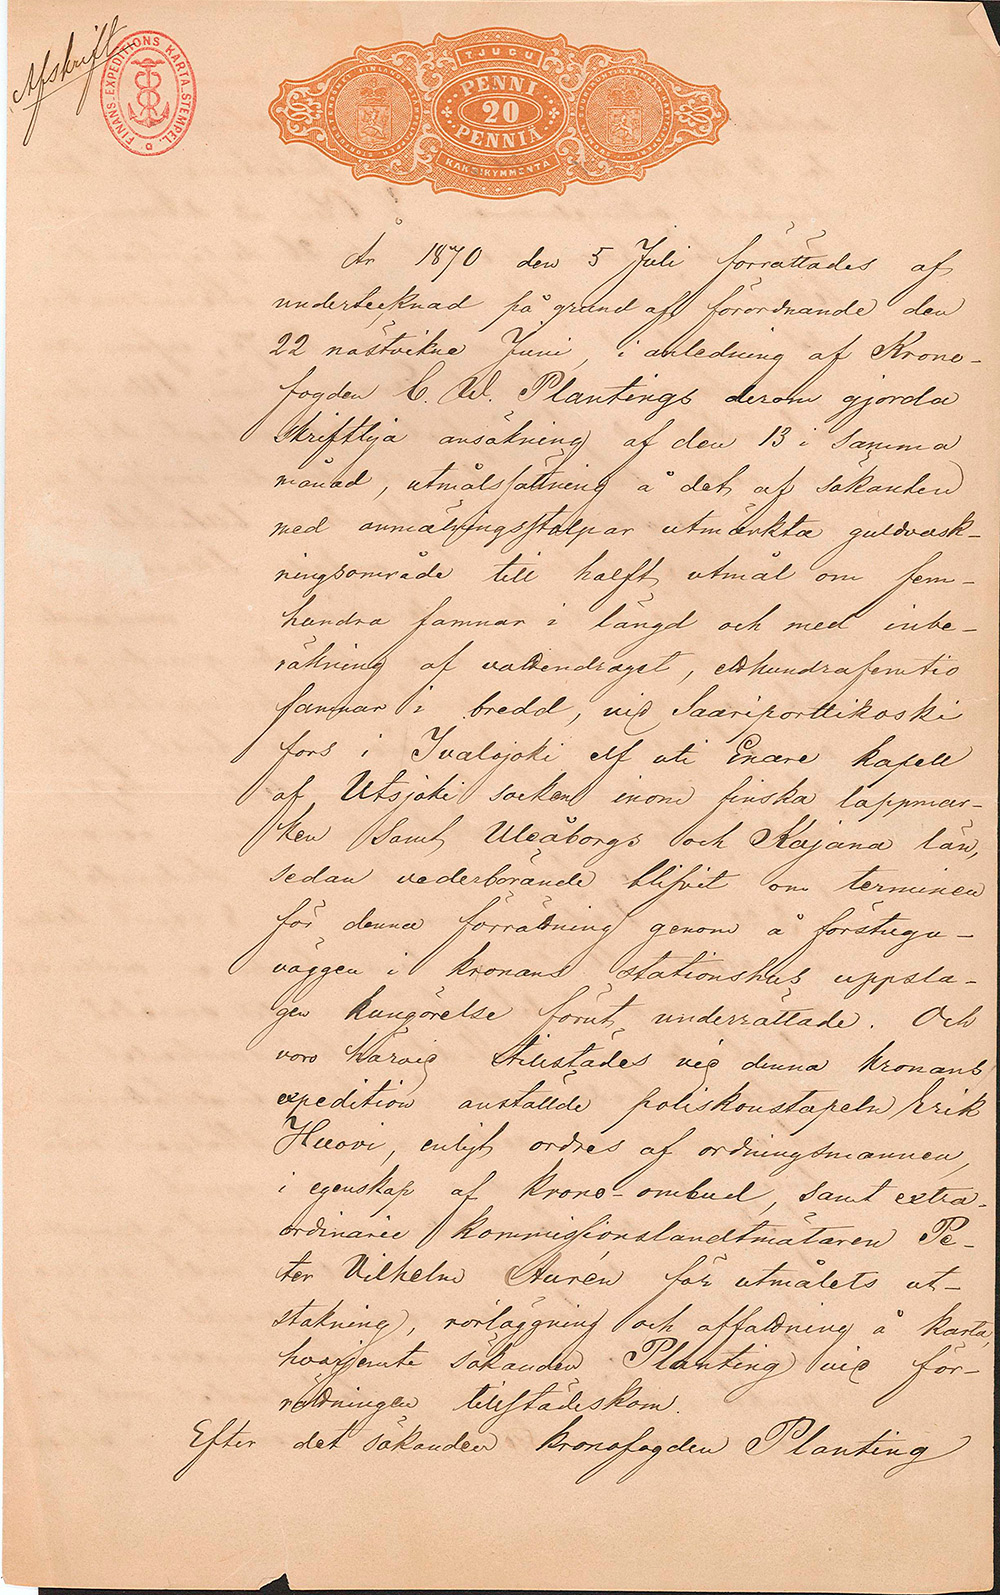 Afskrift
FINANS-EXPEDITIONS KARTA-STEMPEL
TJUGU
PENNI
20
PENNIÄ
KAKSIKYMMENTÄ
År 1870 den 5 Juli förrättades af
undertecknad på grund af förordnande den
22 nästvikne Juni, i anledning af Krono-
fogden C. W. Plantings derom gjorda
skriftliga ansökning af den 13 i samma
månad, utmålsfättning å det af sökanden
med anmälningsstolpar utmärkta guldvask-
ningsområde till halft utmål om fem-
hundra famnar i längd och med inbe-
räkning af vattendraget, etthundrafemtio
famnar i bredd, vid Saariporttikoski
fors i Ivalojoki elf uti Enare kapell
af Utsjoki socken inom finska lappmar-
ken samt Uleåborgs och Kajana län,
sedan vederbörande blifvit om terminen
för denna förrättning genom å förstugu-
väggen i kronans stationshus uppsla-
gen kungörelse förut underrättade. Och
voro härvid tillstädes vid denna kronans
expedition anstälde poliskonstapeln Erik
Huovi, enligt ordres af ordningsmannen,
i egenskap af krono-ombud, samt extra-
ordinarie kommissionslandtmätaren Pe-
ter Vilhelm Aurén för utmålets ut-
stakning, rörläggning och affattning å karta,
hvarjemte sökanden Planting vid för-
rättningen tillstädeskom.
Efter det sökanden kronofogden Planting